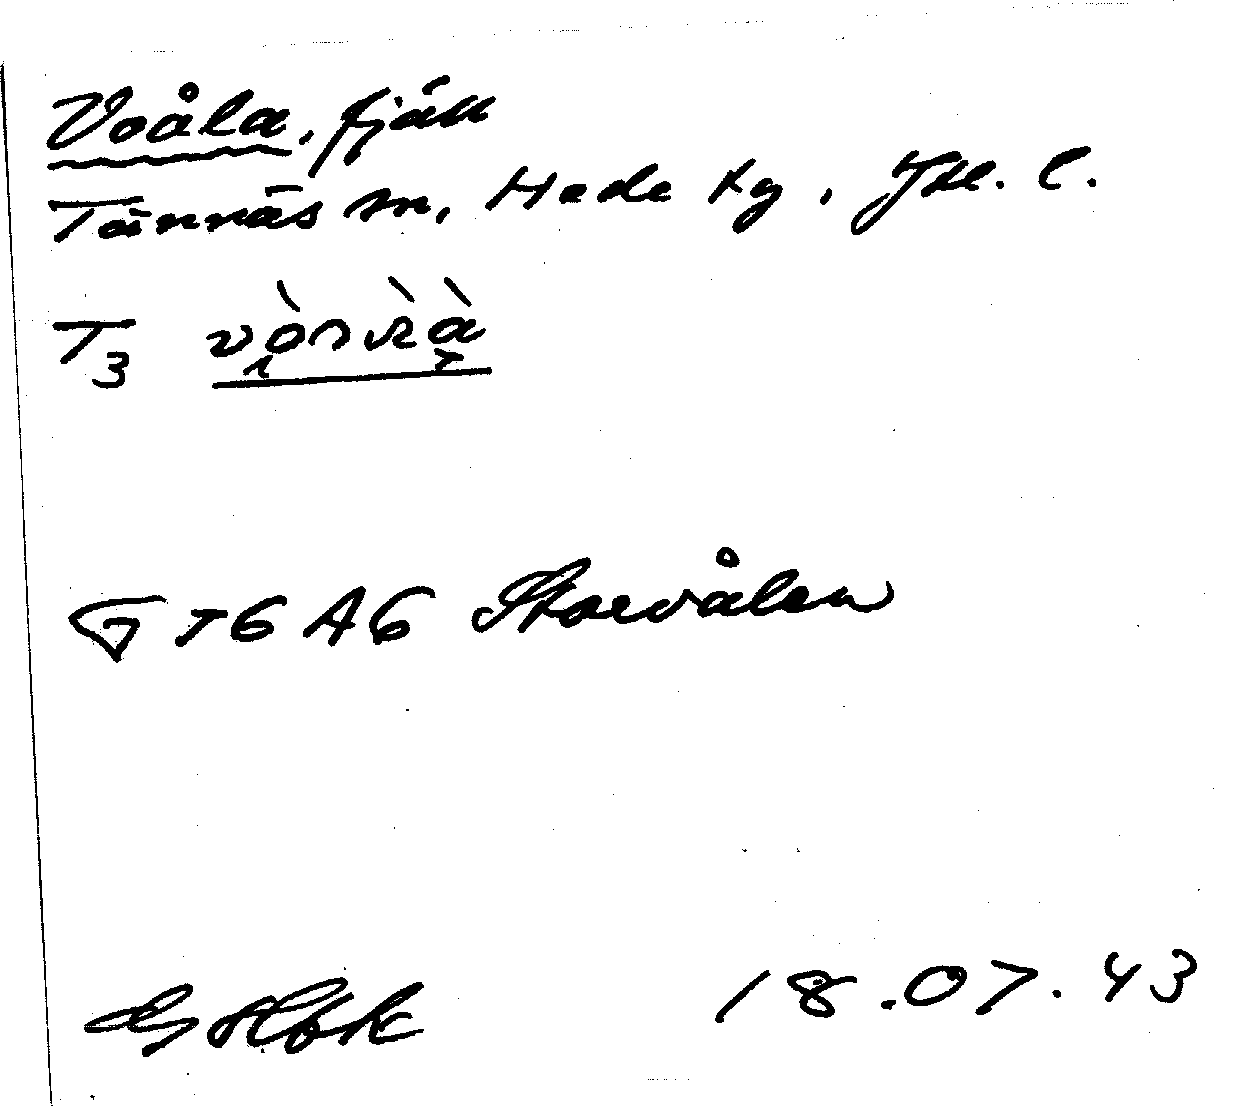 Voåla, fjäll
Tännäs sn, Hede tg, Jtl. l.
T3
GT6A6 Storvålen
18.07.43